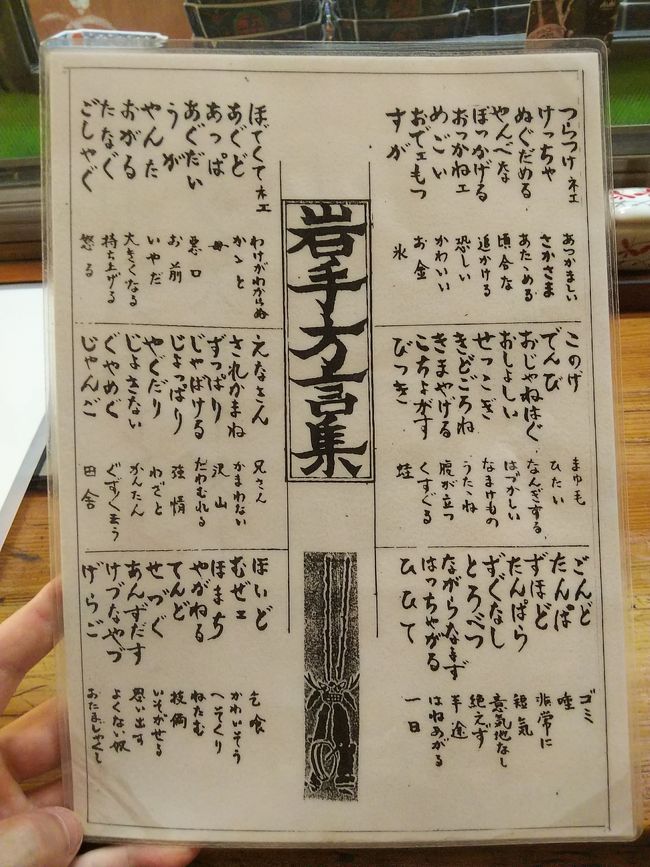 つらつけネェ
けっちゃ
ぬぐだめる
やんべな
ぼっかげる
おっかねェ
めごい
おでェもつ
すが
あつかましい
さかさま
あたゝめる
頃合な
追かける
恐しい
かわいい
お金
氷
このげ
でんび
おじゃねはぐ
おしょしい
せっこぎ
きどころね
きまやげる
こちょがす
びっき
まゆ毛
ひたい
なんぎする
はづかしい
なまけもの
うたゝね
腹が立つ
くすぐる
蛙
ごんど
たんぱ
ずほど
たんぱら
ずぐなし
とろべつ
ながらなまず
はっちゃがる
ひひて
ゴミ
唾
非常に
短気
意気地なし
絶えず
半途
はねあがる
一日
岩手方言集
ほでくてネェ
あぐど
あっぱ
あぐだい
うが
やんた
おがる
たなぐ
ごしゃぐ
わけがわからぬ
かゝと
母
悪口
お前
いやだ
大きくなる
持ち上げる
怒る
えなさん
されかまね
ずっぱり
じゃばける
じょっぱり
やぐだり
じょさない
ぐやめぐ
じゃんご
兄さん
かまわない
沢山
だわむれる
強情
わざと
かんたん
ぐずぐず云う
田舎
ほいど
むぜェ
ほまち
やがねる
てんど
せづぐ
あんずだす
けづなやづ
げらご
乞食
かわいそう
へそくり
ねたむ
技倆
いそがせる
思い出す
よくない奴
おたまじゃくし